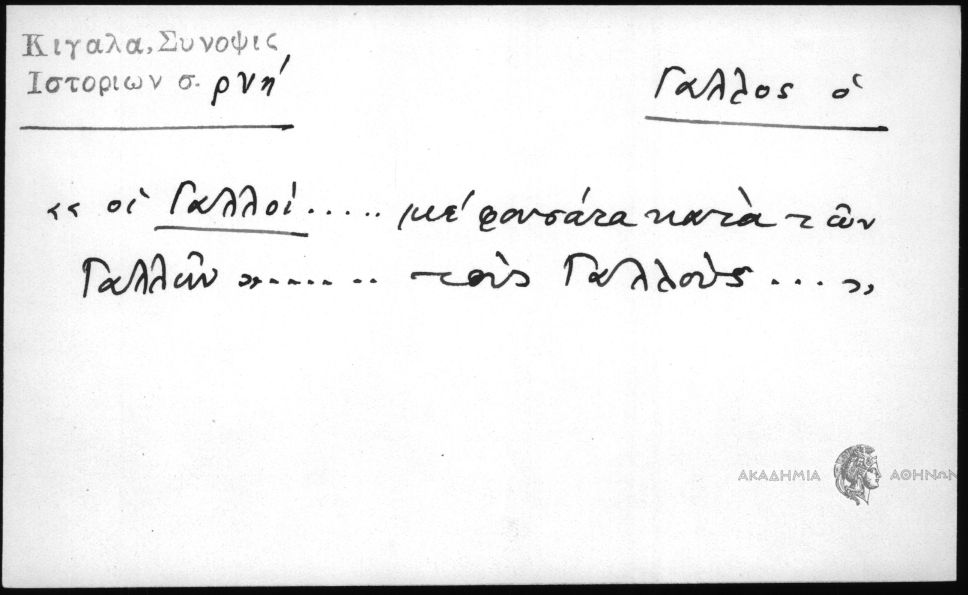 Κιγαλα, Συνοψις
Ιστοριων σ. ρνή
Γαλλος ὁ
«οἱ Γαλλοί..... μέ φουσάτα κατὰ τῶν
Γαλλῶν»...... τοὺς Γαλλούς....»
ΑΚΑΔΗΜΙΑ ΑΘΗΝΩΝ